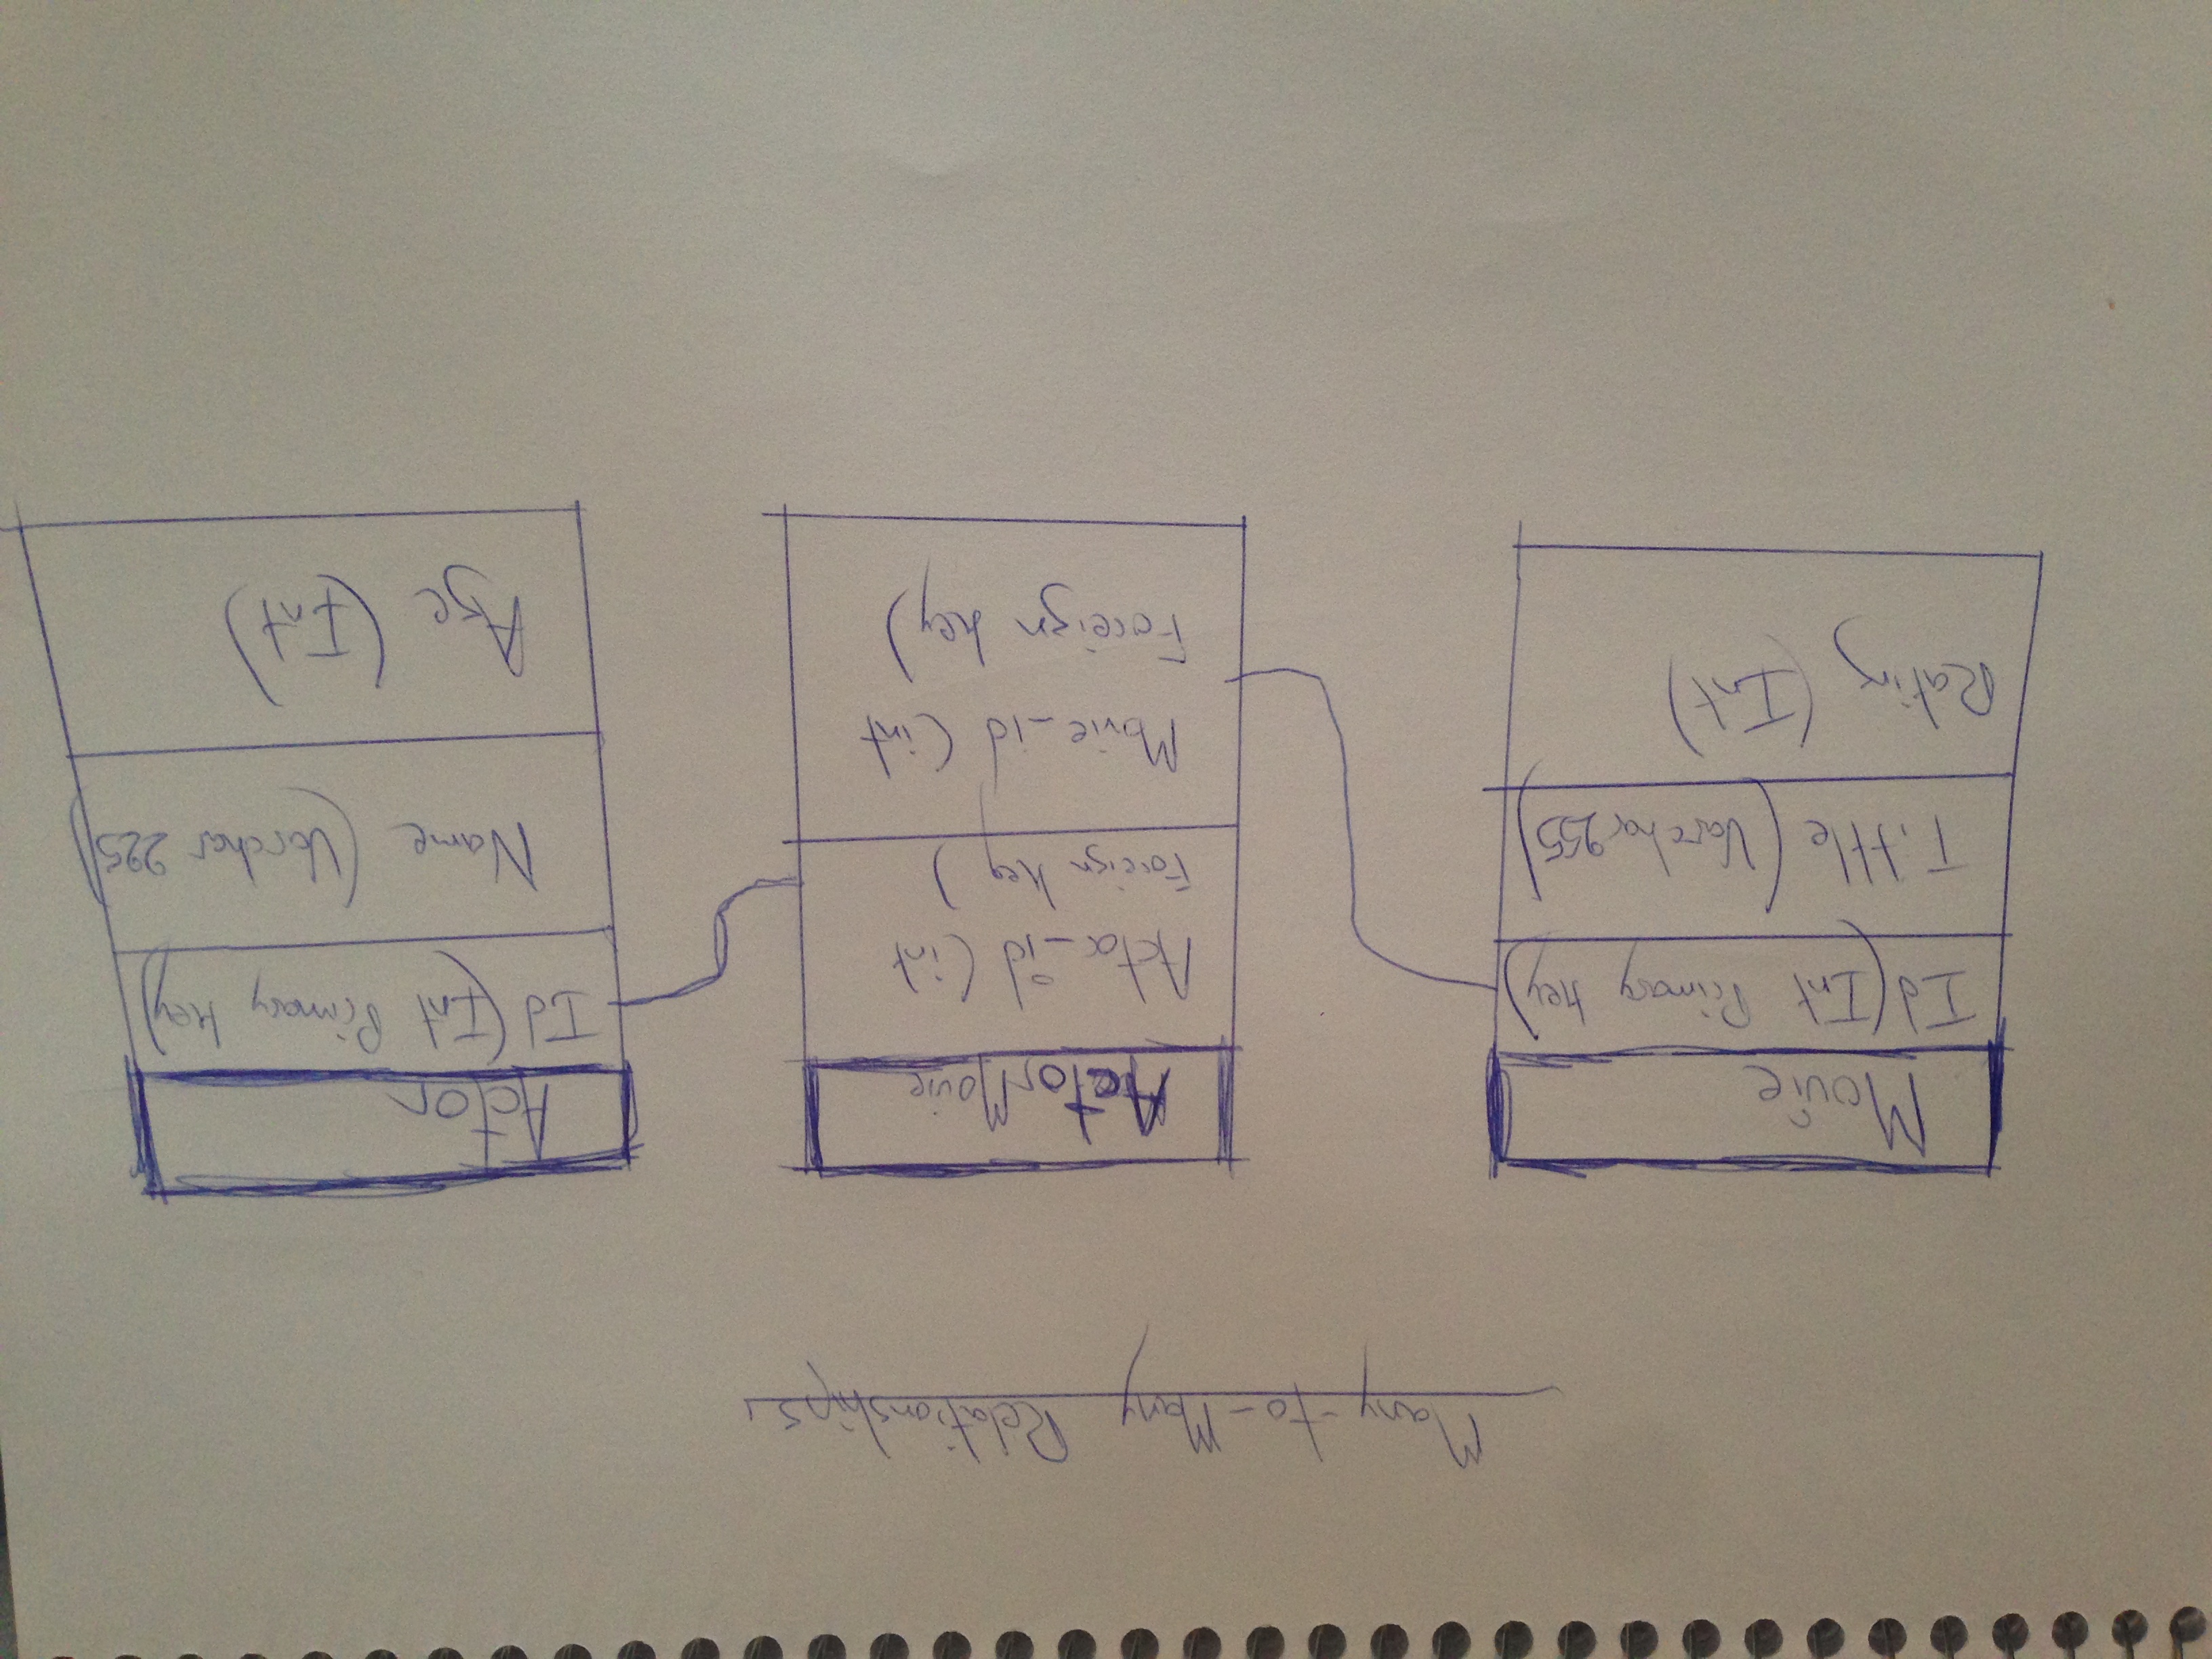 Many-to-Many Relationships
Movie
Id (Int Primary key)
Tittle (Varchar 255)
Rating (Int)
ActorMovie
Actor_id (int
Foreign key)
Movie_id (int
Foreign key)
Actor
Id (Int Primary key)
Name (Varchar 225)
Age (Int)